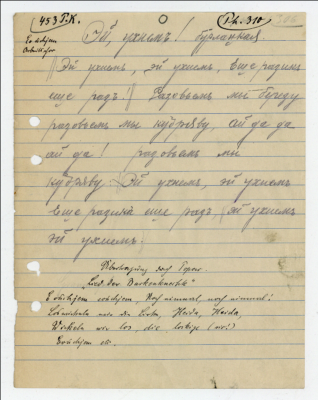 453 P.K.
Ph. 310
Эй, ухнемъ! бурлацкая.
Эй ухнемъ, эй ухнемъ, еще разикъ
еще разъ! Разовьемъ мы березу
разовьемъ мы кудряву, ай да да
ай да! разовьемъ мы
кудряву. Эй ухнемъ, эй ухнемъ
Еще разикъ еще разъ, эй ухнемъ
эй ухнемъ.
Übertragung des
"Lied der
noch einmal, noch einmal!
wir die Birke, Heida, Heida,
wir los, die lockige (sic!)
etc.